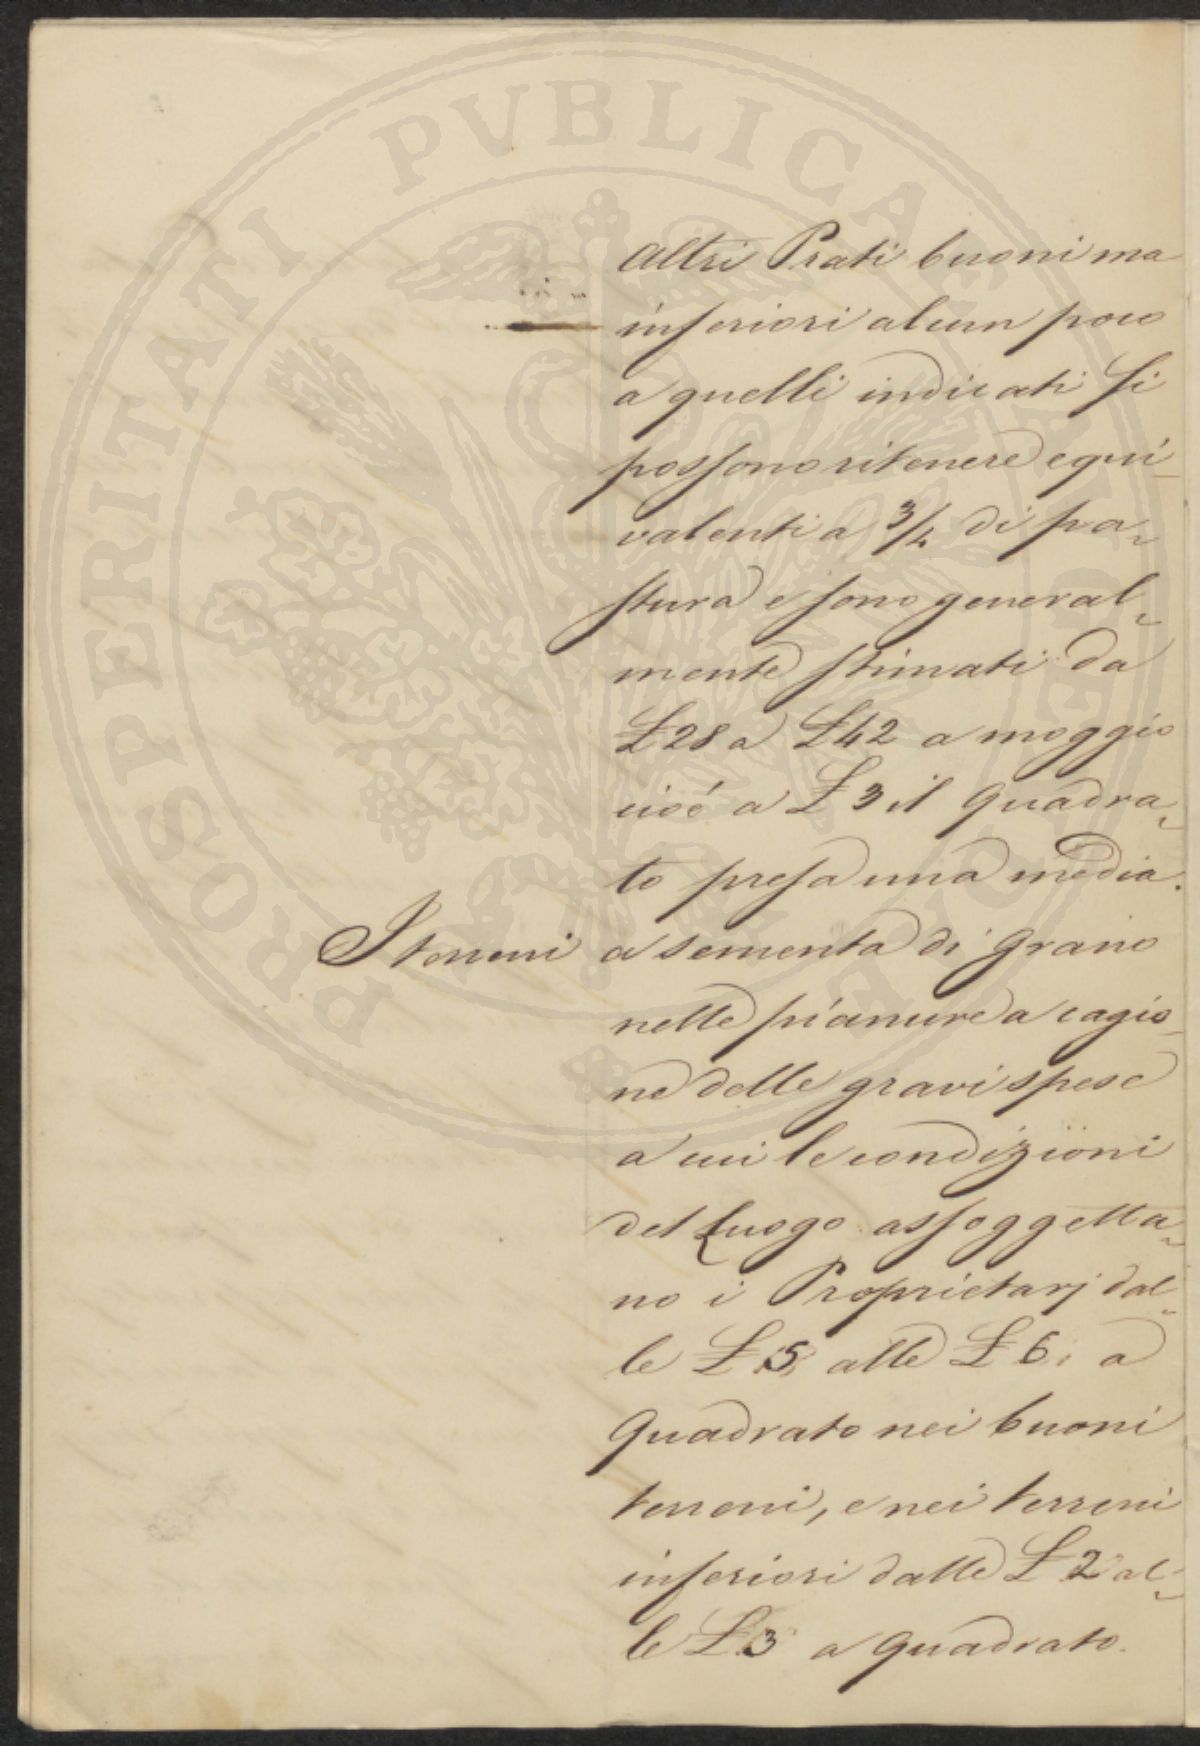 PROSPERITATI PVBLICAE AVGENDAE
altri Prati buoni ma
inferiori alcun poco
a quelli indicati si
possono ritenere equi-
valenti a 3/4 di pa-
stura e sono general-
mente stimati da
£ 28 a £ 42 a moggio
cioè a £ 3 il quadra-
to presa una media.
I terreni a sementa di grano
nelle pianure a cagio-
ne delle gravi spese
a cui le condizioni
del luogo assoggetta-
no i Proprietarj dal-
le £ 5 alle £ 6, a
quadrato nei buoni
terreni, e nei terreni
inferiori dalle £ 2 al-
le £ 3 a quadrato.